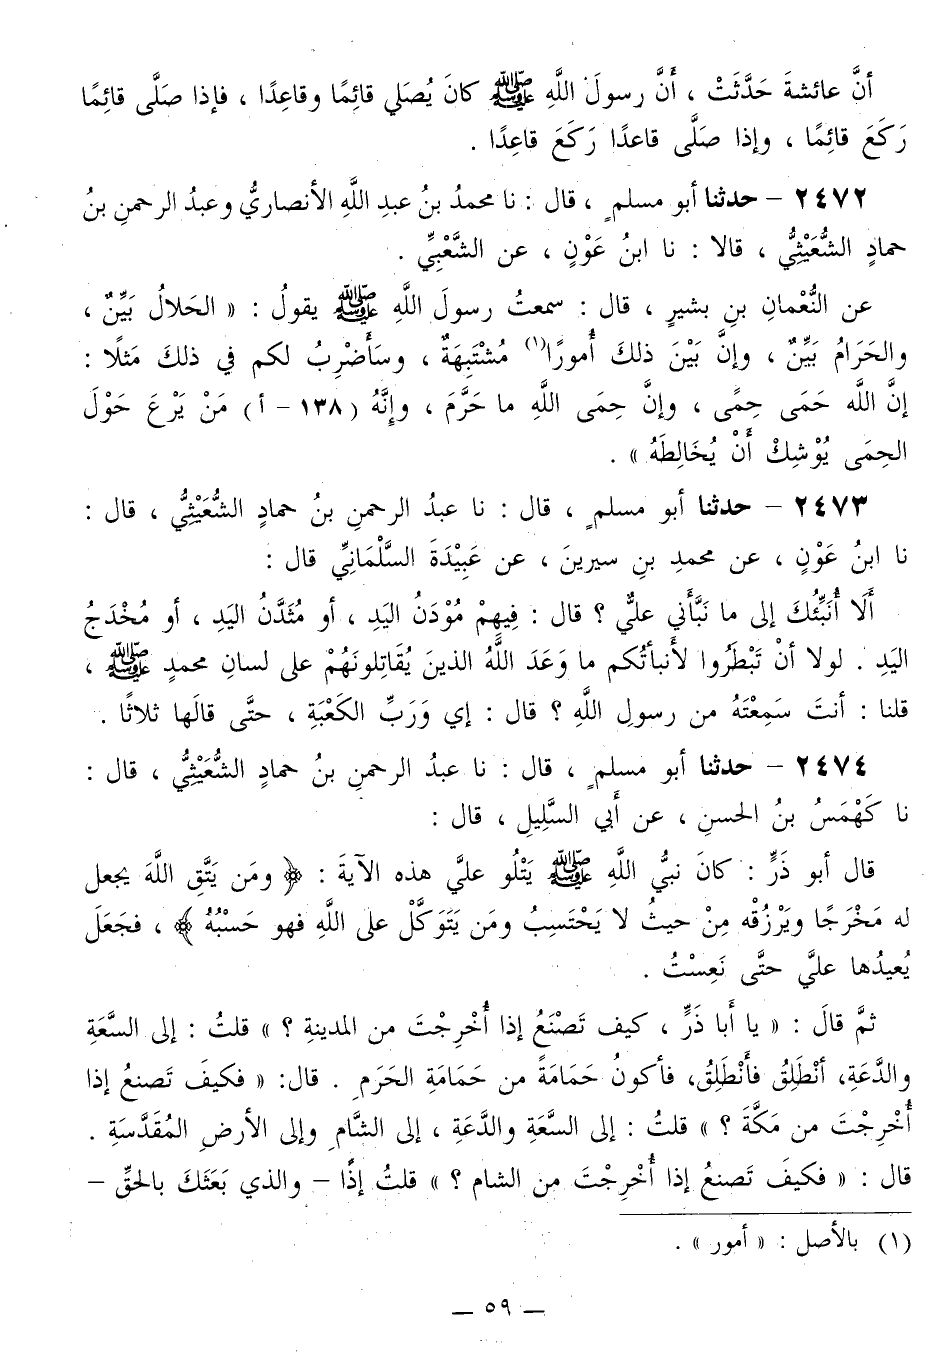 أنَّ عائشةَ حَدَّثَتْ ، أَنَّ رسولَ اللَّهِ ﷺ كانَ يُصَلي قائِمًا وقاعِدًا ، فإذا صَلَّى قائِمًا
رَكَعَ قائِمًا ، وإذا صَلَّى قاعدًا رَكَعَ قاعِدًا .
٢٤٧٢ – حدثنا أبو مسلمٍ ، قال : نا محمدُ بنُ عبدِ اللَّهِ الأنصاريُّ وعبدُ الرحمنِ بنُ
حمادٍ الشُّعَيْثِيُّ ، قالا : نا ابنُ عَوْنٍ ، عن الشَّعْبِيِّ .
عن النُّعْمانِ بنِ بشيرٍ ، قال : سمعتُ رسولَ اللَّهِ ﷺ يقولُ : « الحَلالُ بَيِّنٌ ،
والحَرَامُ بَيِّنٌ ، وإنَّ بَيْنَ ذلكَ أُمورًا(١) مُشْتَبِهَةٌ ، وسَأَضْرِبُ لكم في ذلكَ مَثلًا :
إنَّ اللَّه حَمَى حِمًى ، وإنَّ حِمَى اللَّهِ ما حَرَّمَ ، وإِنَّهُ (١٣٨ – أ) مَنْ يَرْعَ حَوْلَ
الحِمَى يُوْشِكْ أَنْ يُخَالِطَهُ » .
٢٤٧٣ – حدثنا أبو مسلمٍ ، قال : نا عبدُ الرحمنِ بنُ حمادٍ الشُّعَيْثِيُّ ، قال :
نا ابنُ عَوْنٍ ، عن محمدِ بنِ سيرينَ ، عن عَبِيْدَةَ السَّلْمَانيِّ قال :
أَلَا أُنَبِّئُكَ إلى ما نَبَّأَني عليٌّ ؟ قال : فِيهِمْ مُوْدَنُ اليَدِ ، أو مُثَدَّنُ اليَدِ ، أو مُخْدَجُ
اليَدِ . لولا أنْ تَبْطَرُوا لأَنبأتُكم ما وَعَدَ اللَّهُ الذينَ يُقَاتِلونَهُمْ على لسانِ محمدٍ ﷺ ،
قلنا : أنتَ سَمِعْتَهُ من رسولِ اللَّهِ ؟ قال : إي وَرَبِّ الكَعْبَةِ ، حتَّى قالَها ثلاثًا .
٢٤٧٤ – حدثنا أبو مسلمٍ ، قال : نا عبدُ الرحمنِ بنُ حمادٍ الشُّعَيْثِيُّ ، قال :
نا كَهْمَسُ بنُ الحسنِ ، عن أَبي السَّلِيلِ ، قال :
قال أبو ذَرٍّ : كانَ نبيُّ اللَّهِ ﷺ يَتْلُو عليَّ هذه الآيةَ : ﴿ ومَن يَتَّقِ اللَّهَ يجعل
له مَخْرَجًا ويَرْزُقْه مِنْ حيثُ لا يَحْتَسِبُ ومَن يَتَوَكَّلْ على اللَّهِ فهو حَسْبُهُ ﴾ ، فجَعَلَ
يُعيدُها عليَّ حتَّى نَعِسْتُ .
ثمَّ قالَ : « يا أَبا ذَرٍّ ، كيف تَصْنَعُ إذا أُخْرِجْتَ من المدينةِ ؟ » قلتُ : إلى السَّعَةِ
والدَّعَةِ، أنْطَلِقُ فأَنْطَلِقُ، فأكونُ حَمَامَةً من حَمَامَةِ الحَرَمِ . قال: « فكيفَ تَصنعُ إذا
أُخْرِجْتَ من مَكَّةَ ؟ » قلتُ : إلى السَّعَةِ والدَّعَةِ ، إلى الشَّامِ وإلى الأرضِ المُقَدَّسَةِ .
قال : « فكيفَ تَصنعُ إذا أُخْرِجْتَ من الشام ؟ » قلتُ إذًا – والذي بَعَثَكَ بالحقِّ –
(١) بالأصل : « أمور » .
— ٥٩ —